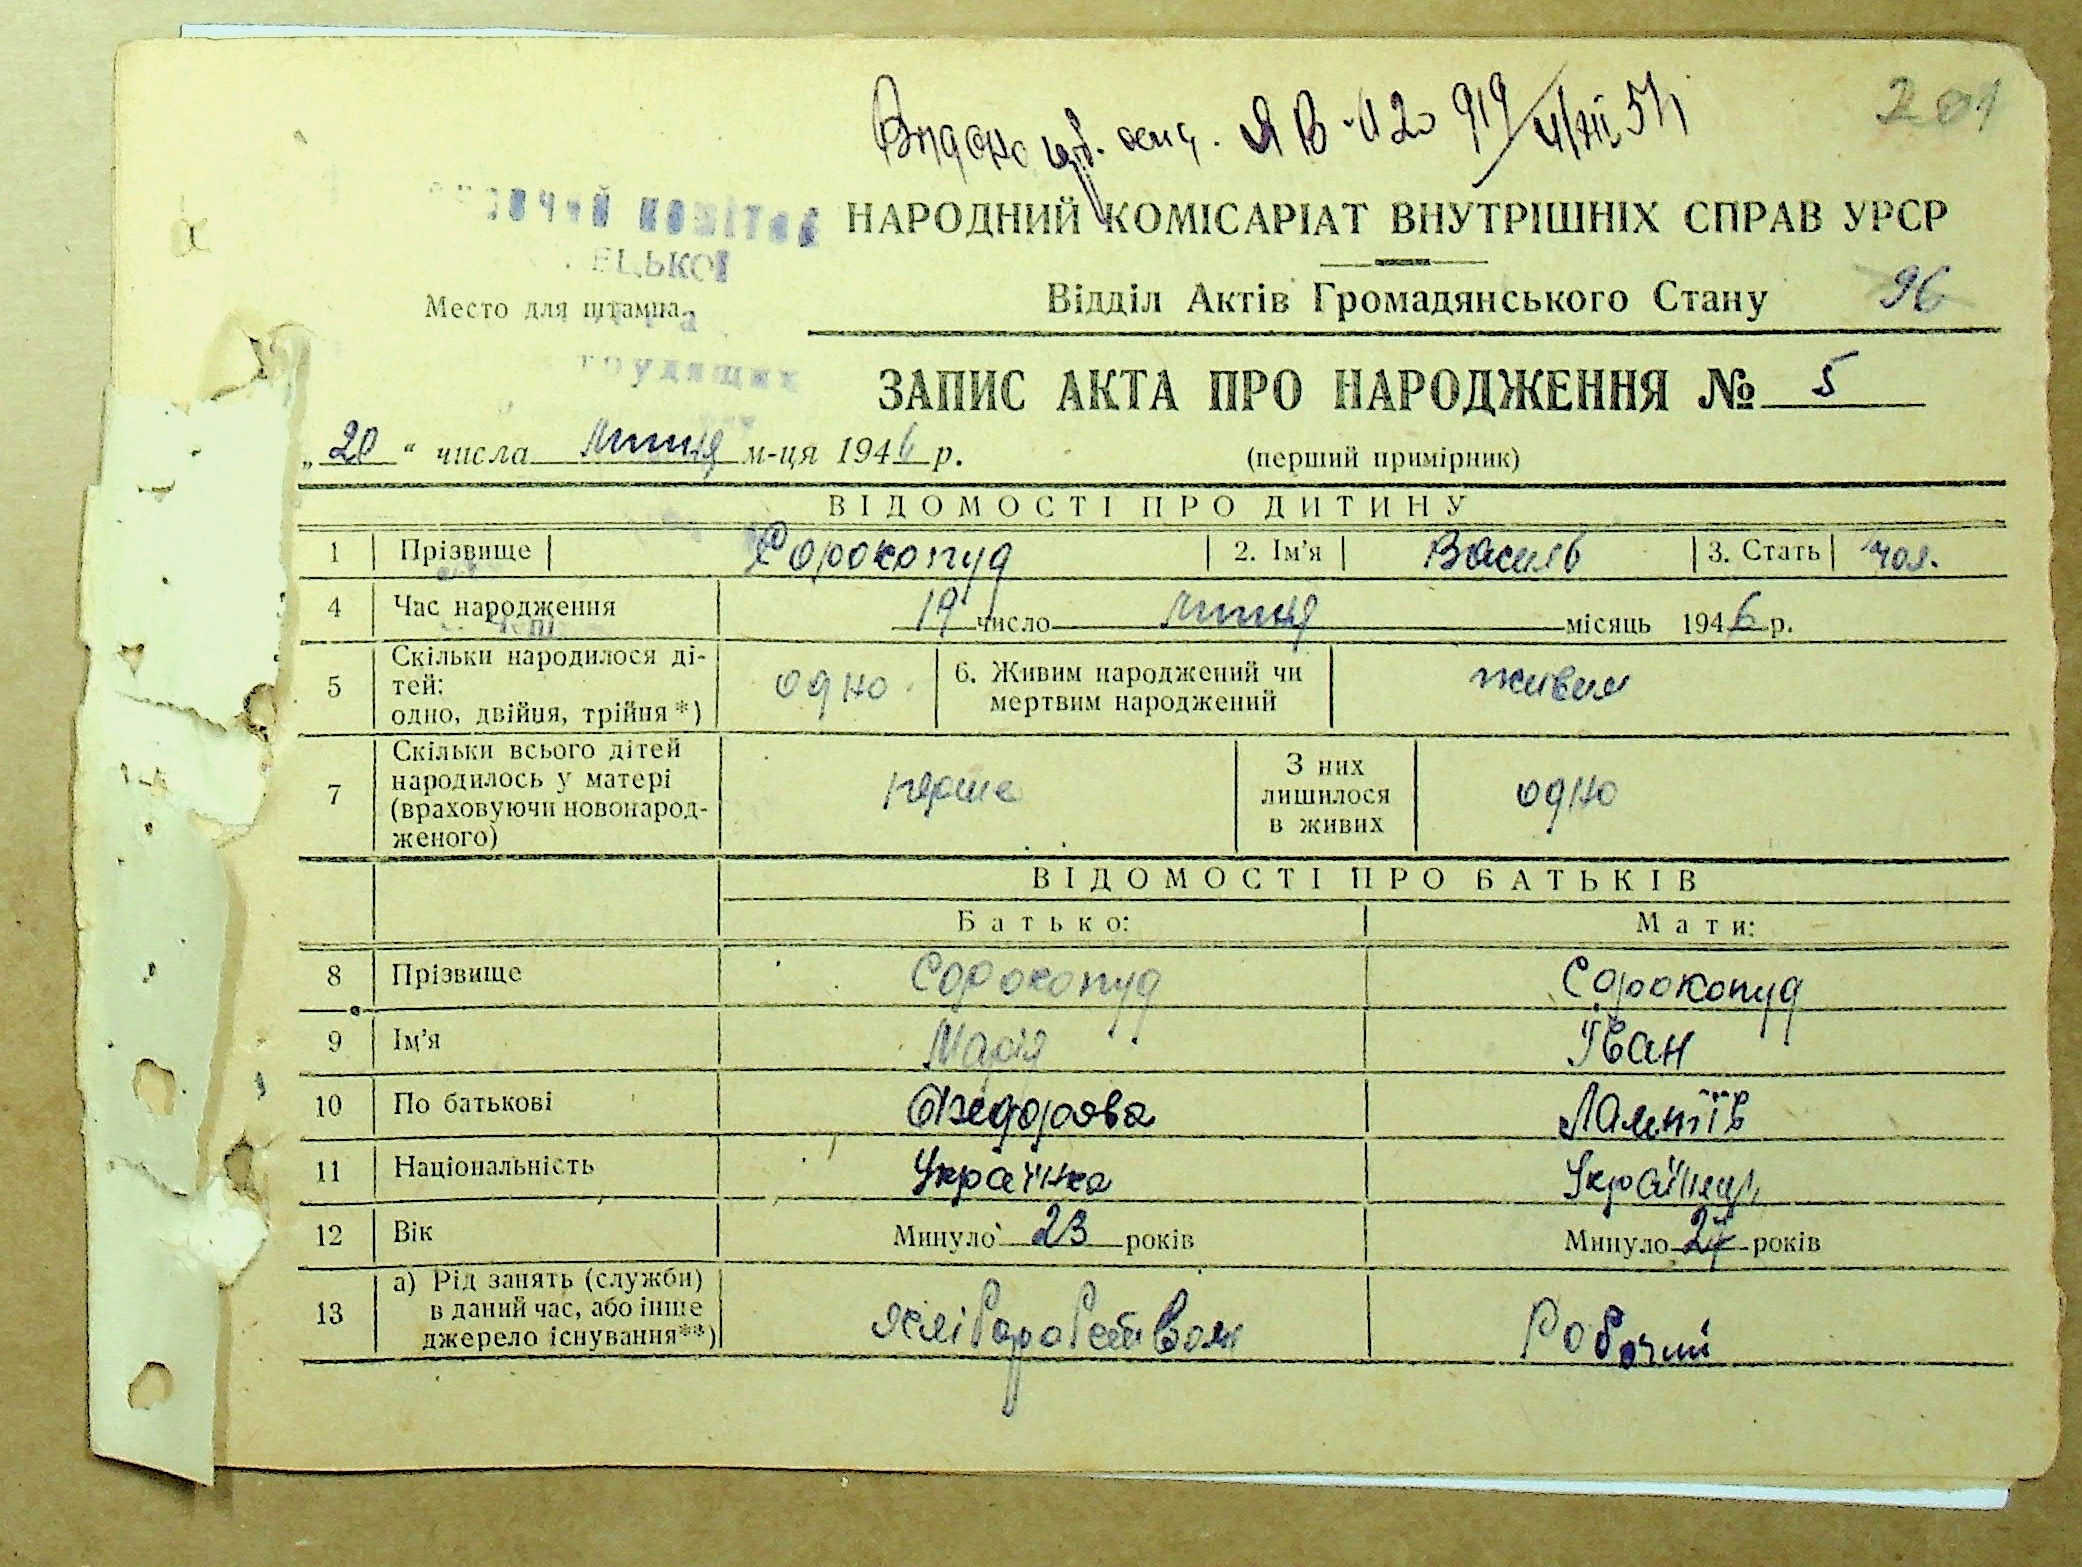 Видано
201
НАРОДНИЙ КОМІСАРІАТ ВНУТРІШНІХ СПРАВ УРСР
Место для штампа
Відділ Актів Громадянського Стану 96
трудящих
ЗАПИС АКТА ПРО НАРОДЖЕННЯ № 5
„20“ числа липня м-ця 1946 р. (перший примірник)
ВІДОМОСТІ ПРО ДИТИНУ
1 Прізвище Сорокопуд 2. Ім’я Василь 3. Стать чол.
4 Час народження 19 число липня місяць 1946 р.
5 Скільки народилося ді-
тей:
одно, двійня, трійня*) одно 6. Живим народжений чи
мертвим народжений живим
7 Скільки всього дітей
народилось у матері
(враховуючи новонарод-
женого) перше З них
лишилося
в живих одно
ВІДОМОСТІ ПРО БАТЬКІВ
Батько: Мати:
8 Прізвище Сорокопуд Сорокопуд
9 Ім’я Марія Іван
10 По батькові
11 Національність Українка Українец
12 Вік Минуло 23 років Минуло років
13 а) Рід занять (служби)
в даний час, або інше
джерело існування**) Робочий